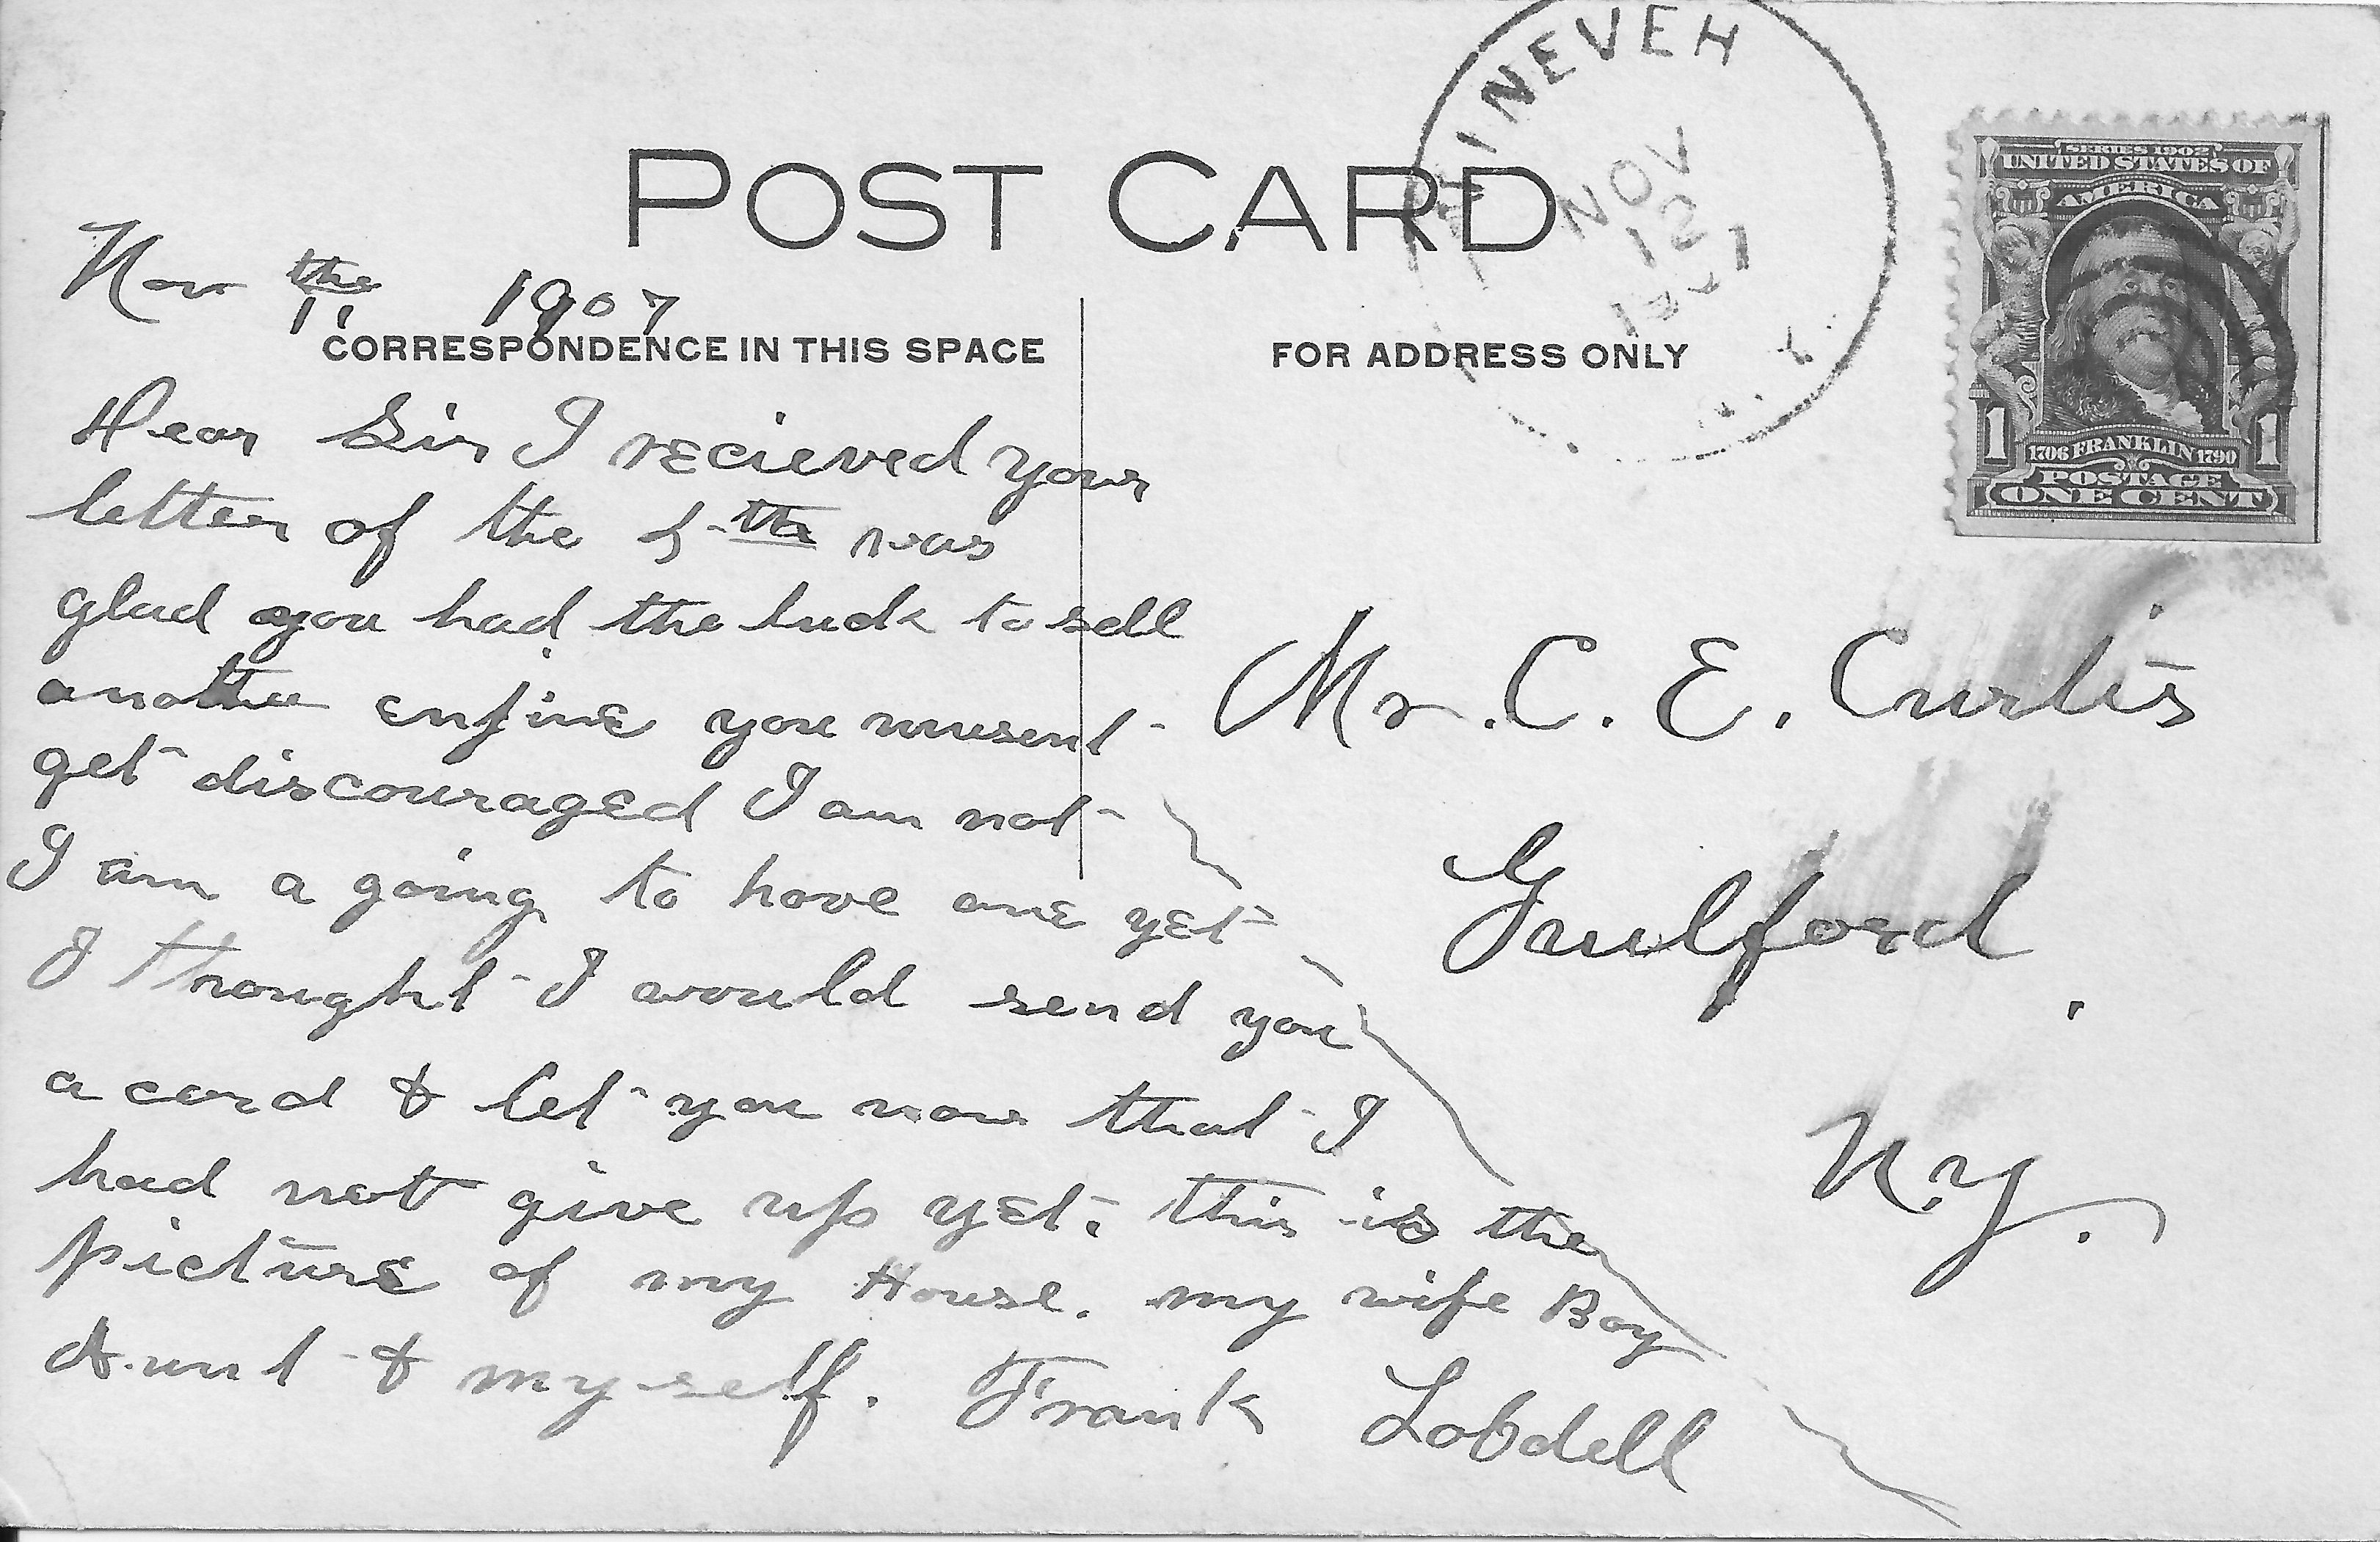 NINEVEH
NOV
12
1907
N.Y.
SERIES 1902
UNITED STATES OF
AMERICA
1706 FRANKLIN 1790
1 1
POSTAGE
ONE CENT
POST CARD
Nov the 11 1907
CORRESPONDENCE IN THIS SPACE
FOR ADDRESS ONLY
Dear Sir I recieved your
letter of the 5th was
glad you had the luck to sell
another enjine you musent
get discouraged I am not
I am a going to have one yet
I thought I would send you
a card & let you now that I
had not give up yet. this is the
picture of my House. my wife Boy
Aunt & my self. Frank Lobdell
Mr. C. E. Curtis
Guilford,
N.Y.